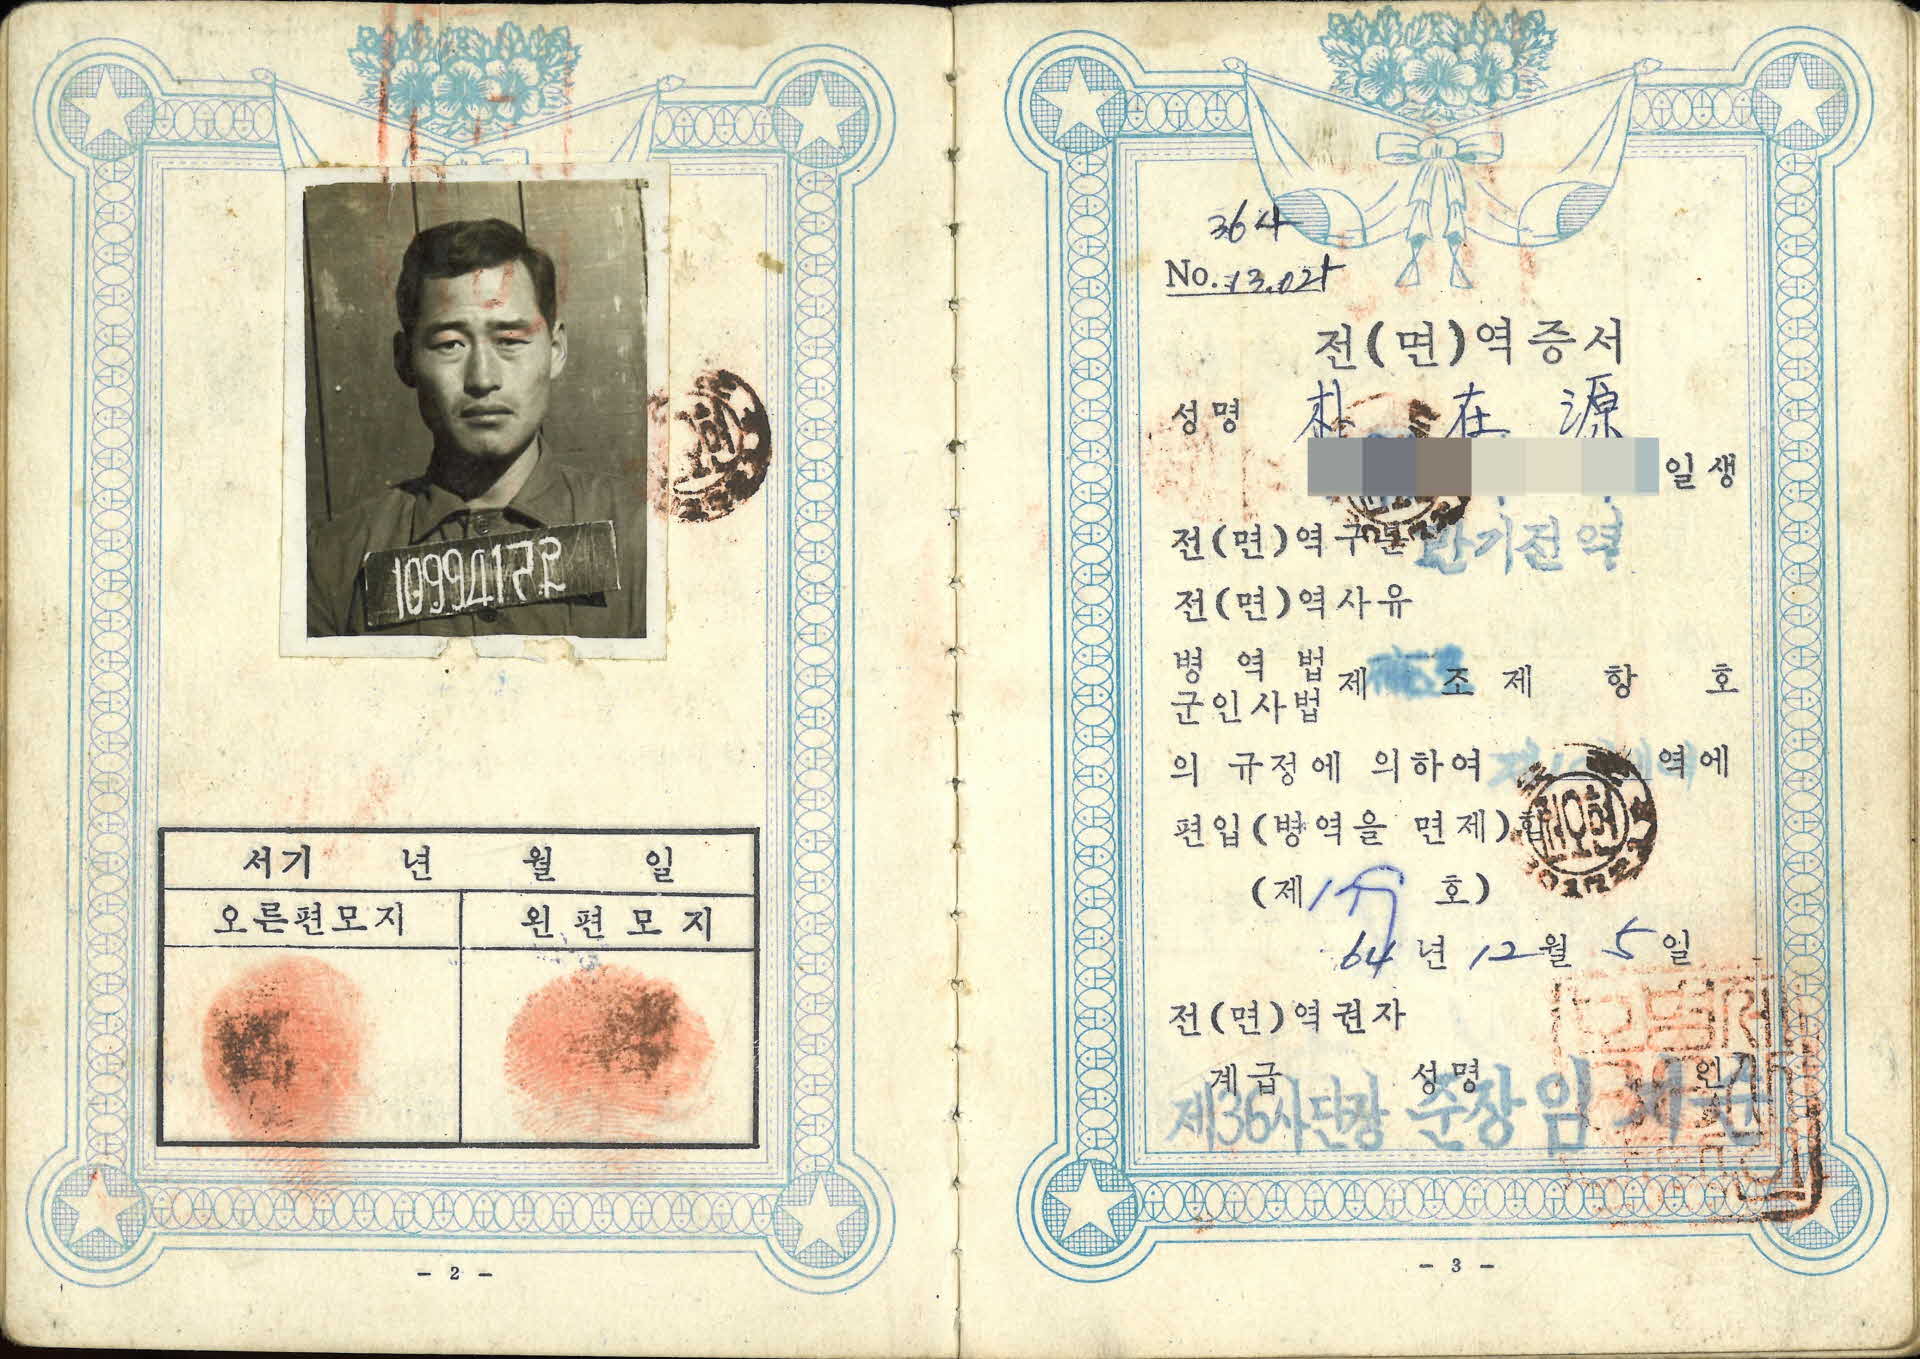 10994172
서기 년 월 일
오른편모지 왼편모지
- 2 -
364
No. 13.02
전(면)역증서
성명 朴在源
일생
전(면)역구분 만기전역
전(면)역사유
병역법
군인사법 제 조 제 항 호
의 규정에 의하여 역에
편입(병역을 면제)함
(제 호)
64년 12월 5일
전(면)역권자
계급 성명 인
제36사단장 준장 임
- 3 -